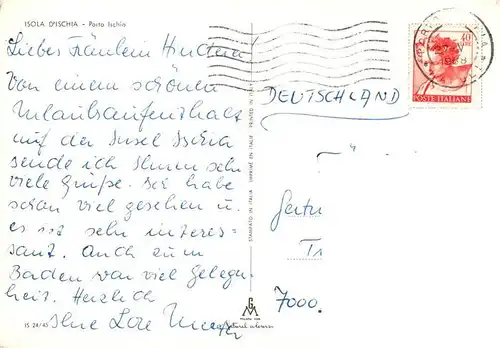 ISOLA D'ISCHIA - Porto Ischia
Liebes Fräulein
Von einem schönen
Urlaubsaufenthalt
auf der Insel Ischia
sende ich Ihnen sehr
viele Grüße. Ich habe
schon viel gesehen u.
es ist sehr interes-
sant. Auch zum
Baden war viel Gelegen-
heit. Herzlich
Ihre Lore
IS 24/45
STAMPATO IN ITALIA - IMPRIMÉ EN ITALIE - PRINTED IN ITALY
DEUTSCHLAND
40
POSTE ITALIANE
1968
7000.